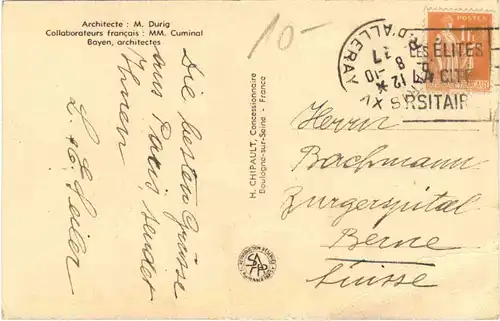 Architecte : M. Durig
Collaborateurs français : MM. Cuminal
Bayen, architectes
Die besten Grüsse
aus Paris, sendet
Ihnen
10-
H. CHIPAULT, Concessionnaire
Boulogne-sur-Seine - France
R. D'ALLERAY
LES ÉLITES
LA CITÉ
RSITAIR
Herrn
Bachmann
Zurgerspital
Berne
Suisse